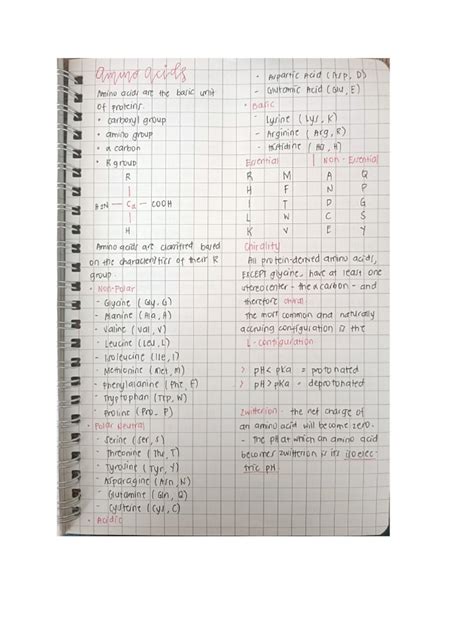 amino acids
Amino acids are the basic unit
of proteins.
• carbonyl group
• amino group
• α carbon
• R group
R
H2N — Cα — COOH
H
Amino acids are classified based
on the characteristics of their R
group.
• Non-Polar
- Glycine (Gly, G)
- Alanine (Ala, A)
- Valine (Val, V)
- Leucine (Leu, L)
- Isoleucine (Ile, I)
- Methionine (Met, M)
- Phenylalanine (Phe, F)
- Tryptophan (Trp, W)
- Proline (Pro, P)
• Polar Neutral
- Serine (Ser, S)
- Threonine (Thr, T)
- Tyrosine (Tyr, Y)
- Asparagine (Asn, N)
- Glutamine (Gln, Q)
- Cysteine (Cys, C)
• Acidic
- Aspartic Acid (Asp, D)
- Glutamic Acid (Glu, E)
• Basic
- Lysine (Lys, K)
- Arginine (Arg, R)
- Histidine (His, H)
Essential | Non-Essential
R M A Q
H F N P
I T D G
L W C S
K V E Y
Chirality
All protein-derived amino acids,
EXCEPT glycine, have at least one
stereocenter - the α carbon - and
therefore chiral.
The most common and naturally
occuring configuration is the
L-configuration
> pH < pKa = protonated
> pH > pKa = deprotonated
Zwitterion - the net charge of
an amino acid will become zero.
- The pH at which an amino acid
becomes zwitterion is its isoelec-
tric pH.